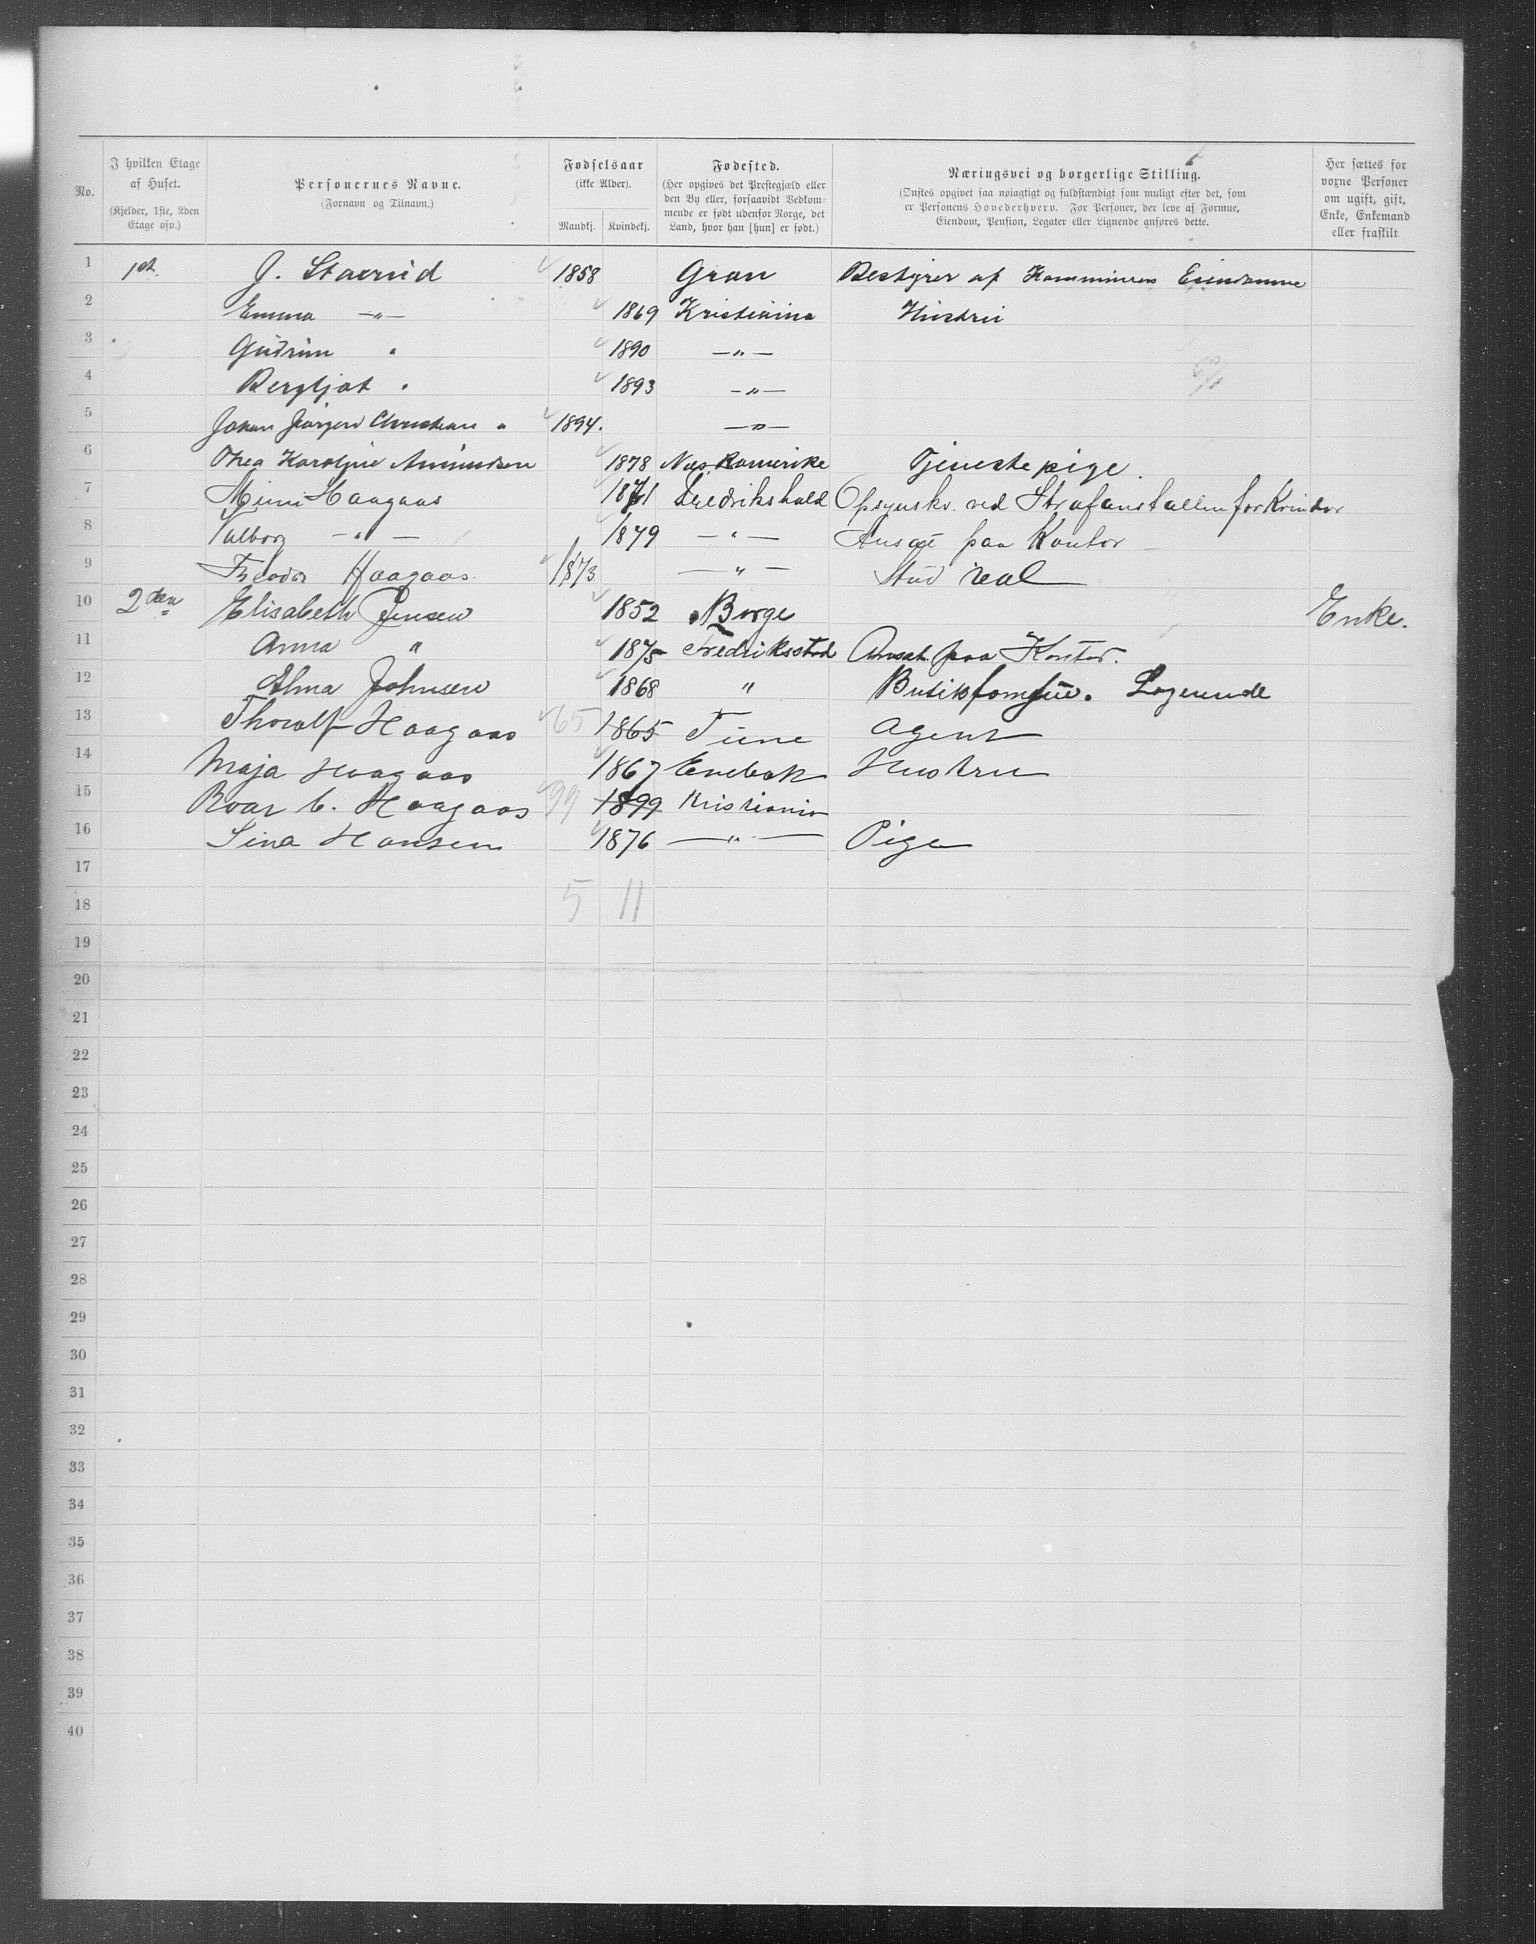 No.
I hvilken Etage af Huset.
(Kjelder, 1ste, 2den Etage osv.)
Personernes Navne.
(Fornavn og Tilnavn.)
Fødselsaar
(ikke Alder).
Mandkj. Kvindekj.
Fødested.
(Her opgives det Prestegjæld eller den By eller, forsaavidt Vedkommende er født udenfor Norge, det Land, hvor han [hun] er født.)
Næringsvei og borgerlige Stilling.
(Ønskes opgivet saa nøiagtigt og fuldstændigt som muligt efter det, som er Personens Hovederhverv. For Personer, der leve af Formue, Eiendom, Pension, Legater eller Lignende anføres dette.
Her sættes for voxne Personer om ugift, gift, Enke, Enkemand eller fraskilt
1 1st. J. Staxrud 1858 Gran Bestyrer af Kommunens Eiendomme
2 Emma —"— 1869 Kristiania Hustru
3 Gudrun " 1890 —"—
4 Bergljot " 1893 —"—
5 Johan Jørgen Christian " 1894. —"—
6 Thea Karoline Amundsen 1878 Næs Romerike Tjenestepige
7 Mimi Haagaas 1871 Fredrikshald Opsynskv. ved Strafanstalten for Kvinder
8 Valborg —"— 1879 —"— Ansat paa Kontor
9 Theodor Haagaas. 1873 —"— Stud real
10 2den Elisabeth Jensen 1852 Borge Enke.
11 Anna " 1875 Fredriksstad Ansat paa Kontor.
12 Alma Johnsen 1868 " Butikjomfru. Logerende
13 Thoralf Haagaas 65 1865 Tune Agent
14 Maja Haagaas 1867 Enebak Hustru
15 Roar C. Haagaas 99 1899 Kristiania
16 Sina Hansen 1876 —"— Pige
17
18 5 11
19
20
21
22
23
24
25
26
27
28
29
30
31
32
33
34
35
36
37
38
39
40